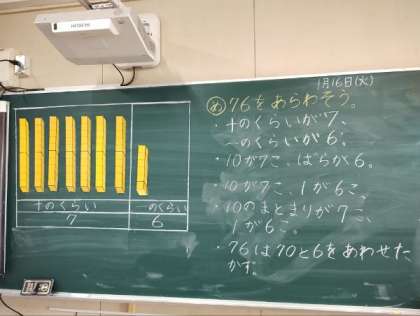 HITACHI
1月16日(火)
め 76をあらわそう。
・十のくらいが7、
一のくらいが6。
・10が7こ、ばらが6。
・10が7こ、1が6こ。
・10のまとまりが7こ、
1が6こ。
・76は70と6をあわせた
かず。
十のくらい 一のくらい
7 6